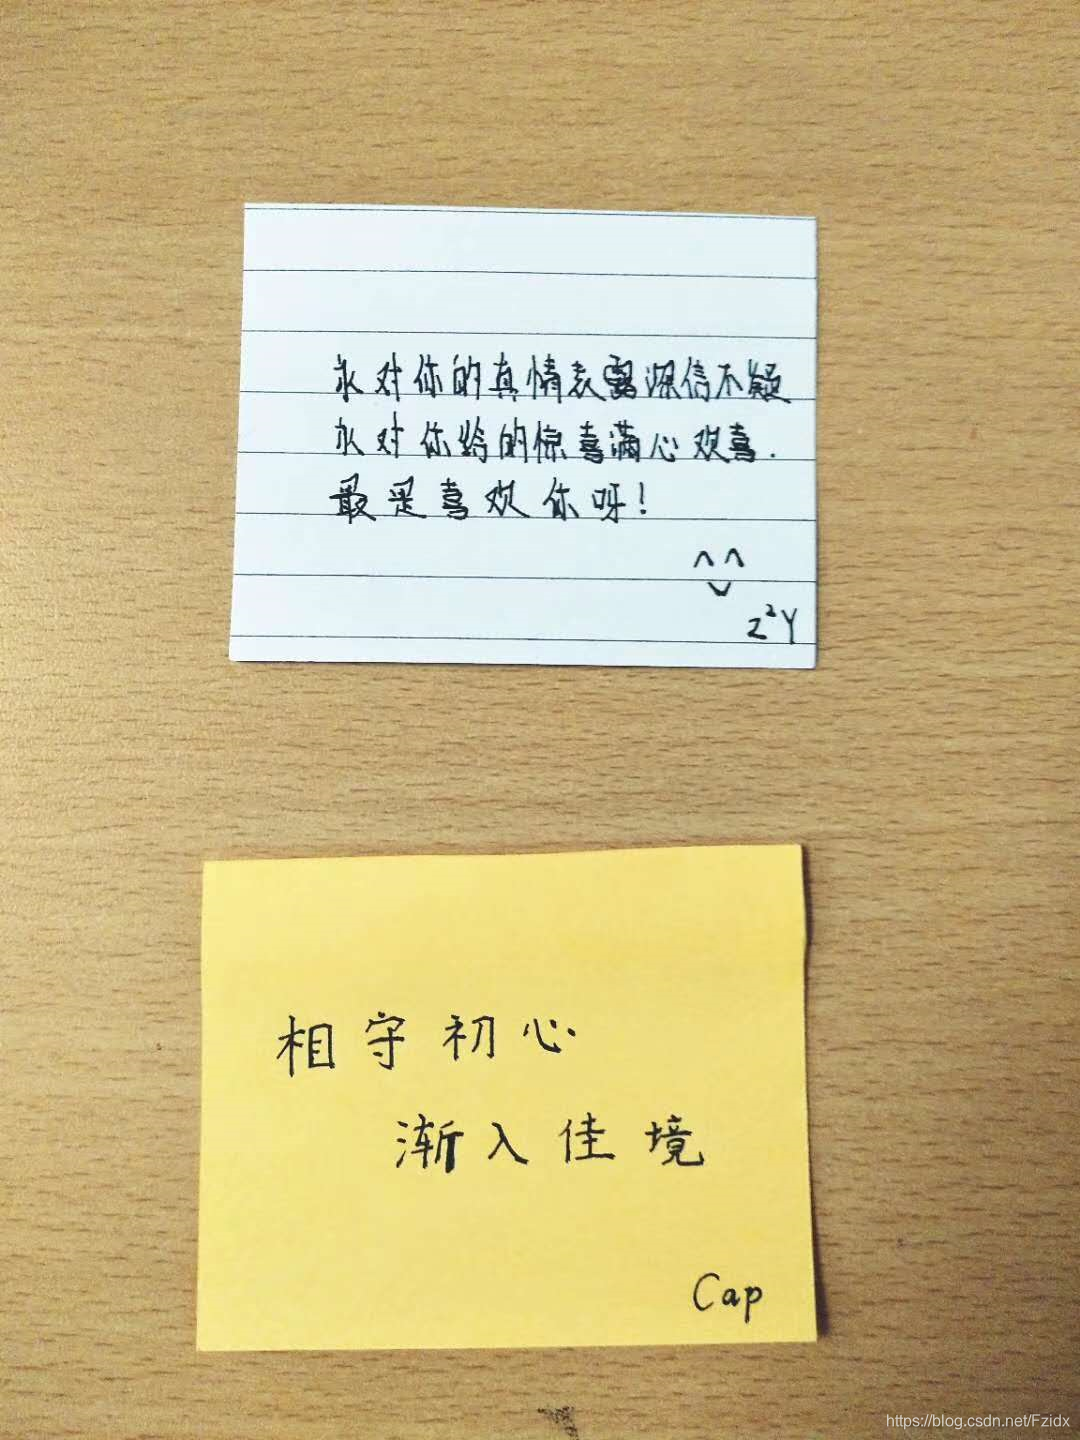 永对你的真情表露深信不疑
永对你给的惊喜满心欢喜.
最是喜欢你呀!
Z²Y
相守初心
渐入佳境
Cap
https://blog.csdn.net/Fzidx